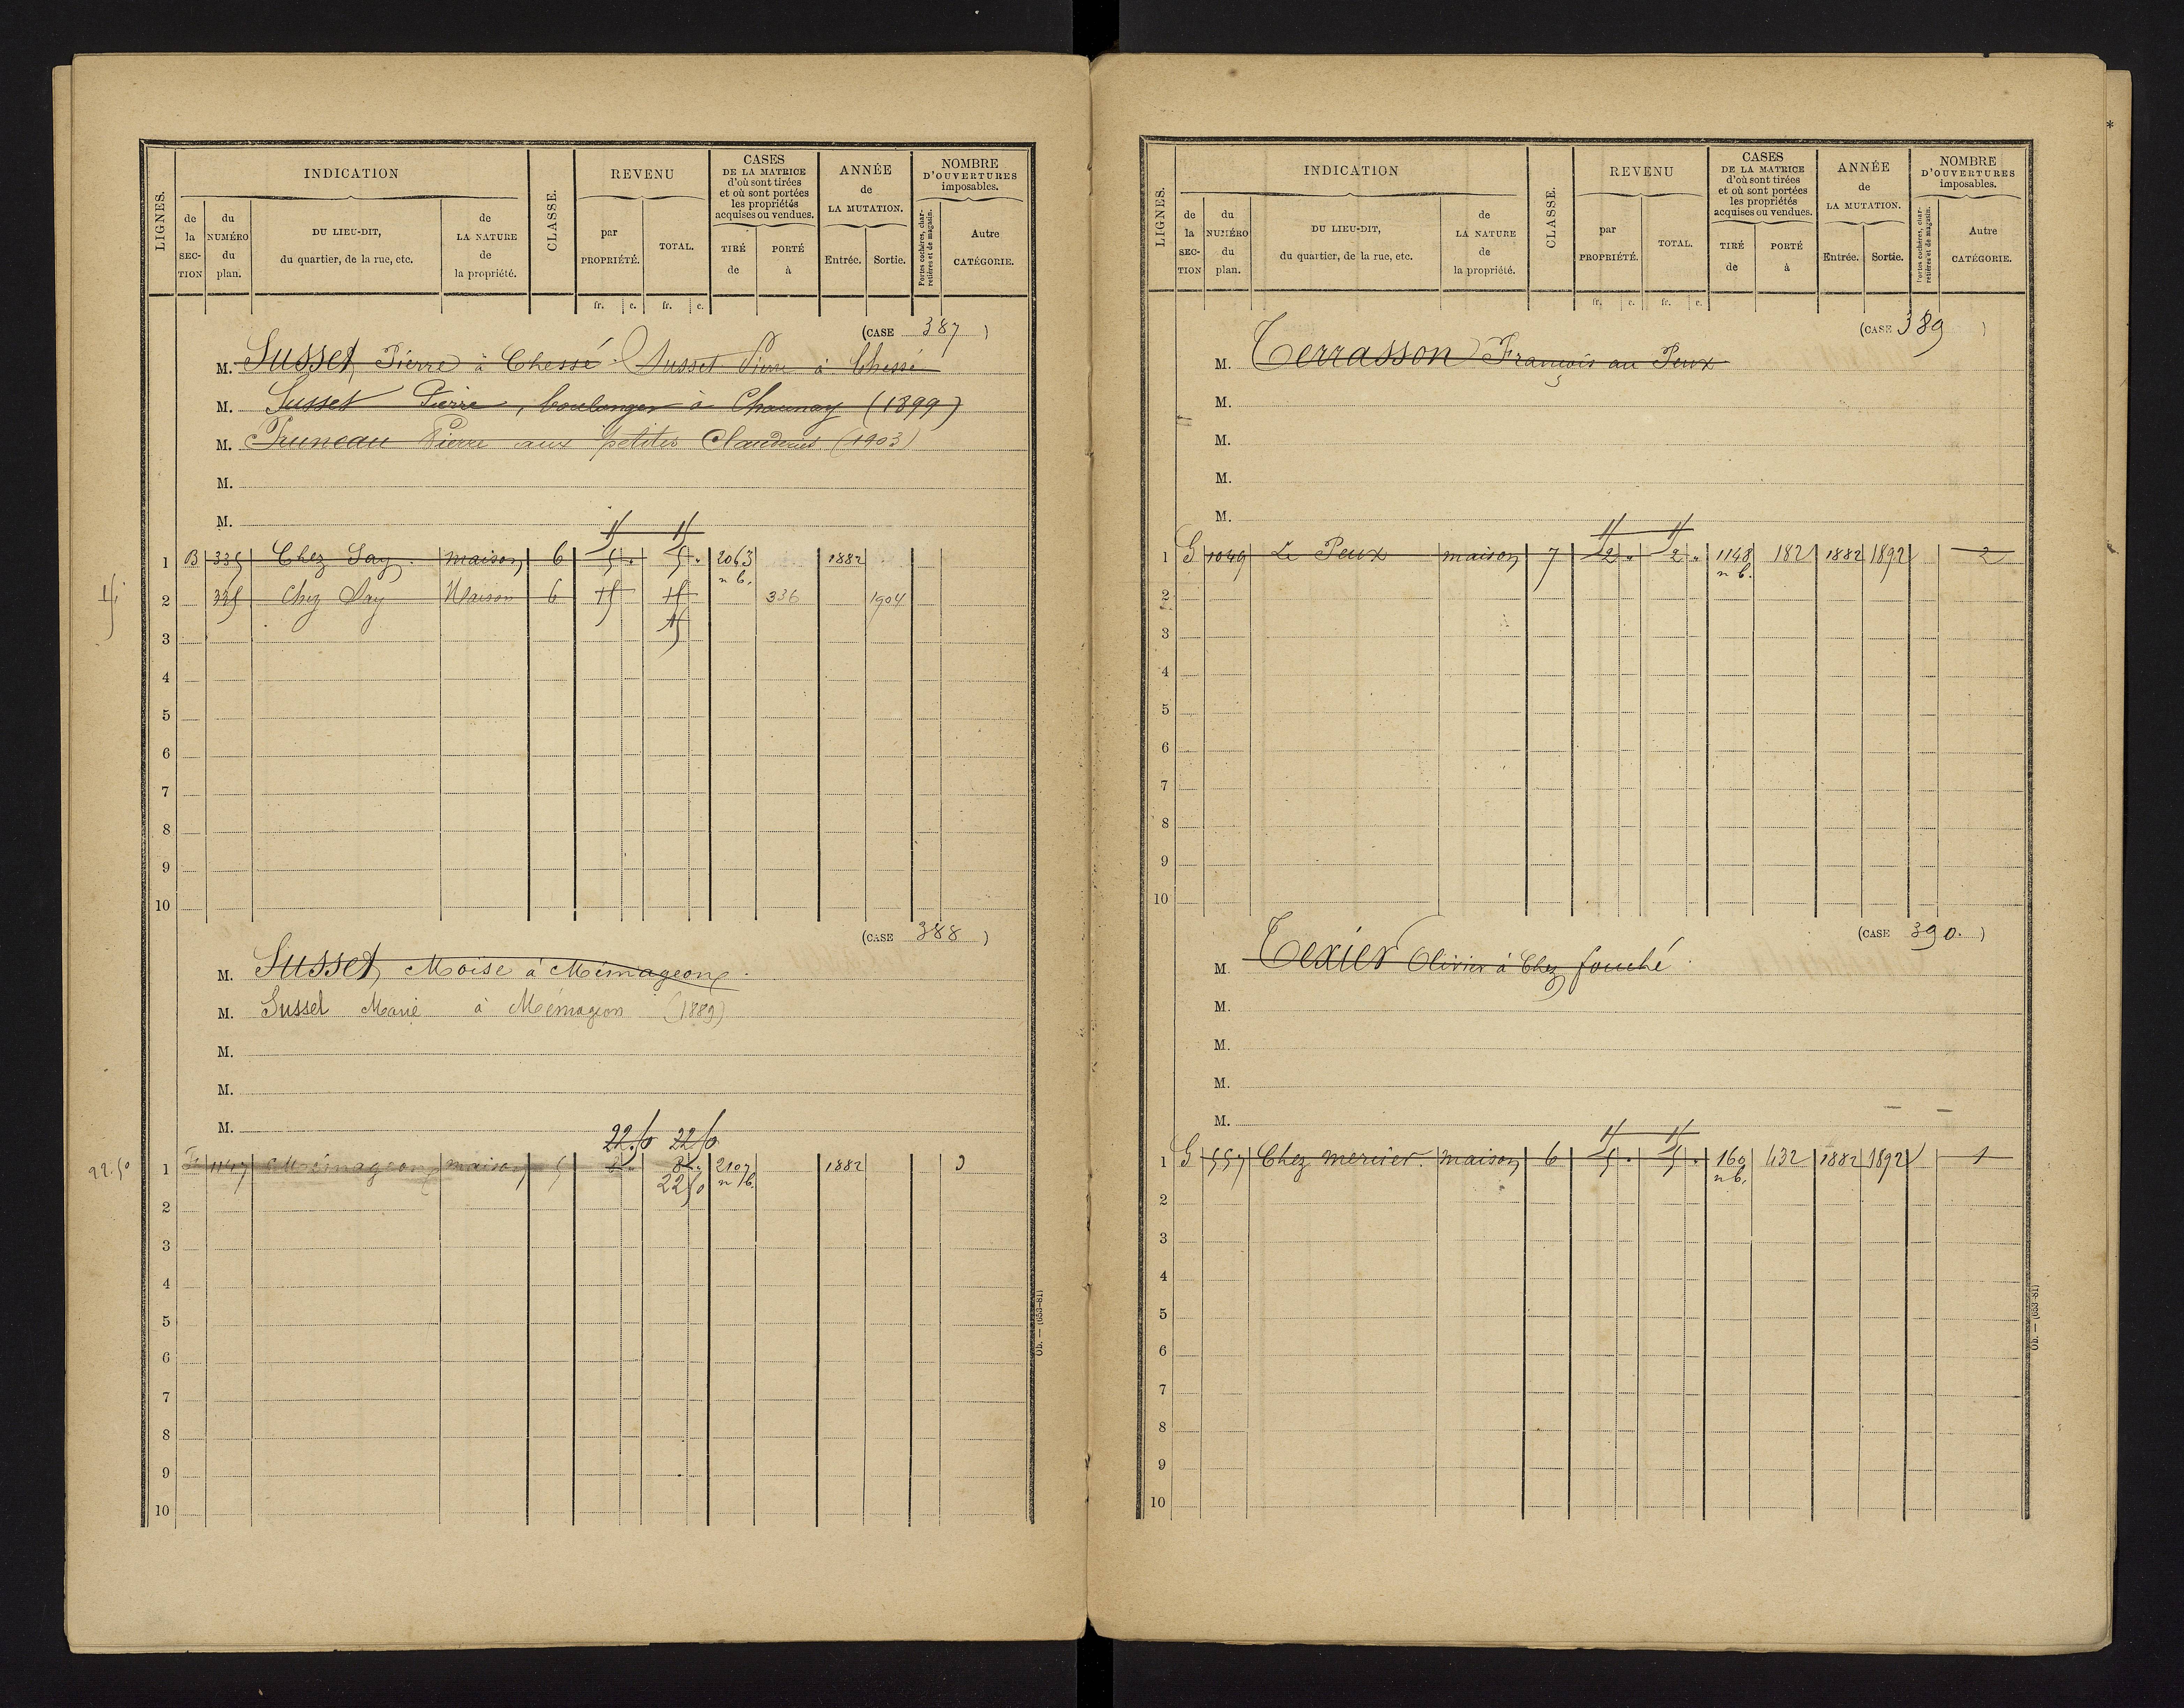 LIGNES.
INDICATION
de la SECTION
du NUMÉRO du plan.
DU LIEU-DIT, du quartier, de la rue, etc.
de LA NATURE de la propriété.
CLASSE.
REVENU
par PROPRIÉTÉ.
TOTAL.
CASES DE LA MATRICE d'où sont tirées et où sont portées les propriétés acquises ou vendues.
TIRÉ de
PORTÉ à
ANNÉE de LA MUTATION.
Entrée.
Sortie.
NOMBRE D'OUVERTURES imposables.
Portes cochères, charretières et de magasin.
Autre CATÉGORIE.
fr. c. fr. c.
(CASE 387)
M. Susset Pierre à Chessé. Susset Pierre à Chessé
M. Susset Pierre, boulanger à Chaunay (1899)
M. Pruneau Pierre aux petites (1903)
M.
M.
1 B 335 Chez Say. maison 6 5 . 5 . 2063 n b. 1882
2 335 Chez Say Maison 6 336 1904
3
4
5
6
7
8
9
10
(CASE 388)
M. Susset Moise à Mémageon.
M. Susset Marie à Mémageon (1889)
M.
M.
M.
22.50 22.50
22.50
1 Mémageon maison 5 8 . 8 . 2107 n b. 1882 3
22.50
2
3
4
5
6
7
8
9
10
Ob. — (653-81)
LIGNES.
INDICATION
de la SECTION
du NUMÉRO du plan.
DU LIEU-DIT, du quartier, de la rue, etc.
de LA NATURE de la propriété.
CLASSE.
REVENU
par PROPRIÉTÉ.
TOTAL.
CASES DE LA MATRICE d'où sont tirées et où sont portées les propriétés acquises ou vendues.
TIRÉ de
PORTÉ à
ANNÉE de LA MUTATION.
Entrée.
Sortie.
NOMBRE D'OUVERTURES imposables.
Portes cochères, charretières et de magasin.
Autre CATÉGORIE.
fr. c. fr. c.
(CASE 389)
M. Terrasson François au Peux
M.
M.
M.
M.
1 G 1049 Le Peux maison 7 2 . 2 . 1148 n b. 182 1882 1892 2
2
3
4
5
6
7
8
9
10
(CASE 390.)
M. Texier Olivier à Chez fouché.
M.
M.
M.
M.
1 G 557 Chez mercier. maison 6 5 . 5 . 160 n b. 432 1882 1892 1
2
3
4
5
6
7
8
9
10
Ob. — (653-81)